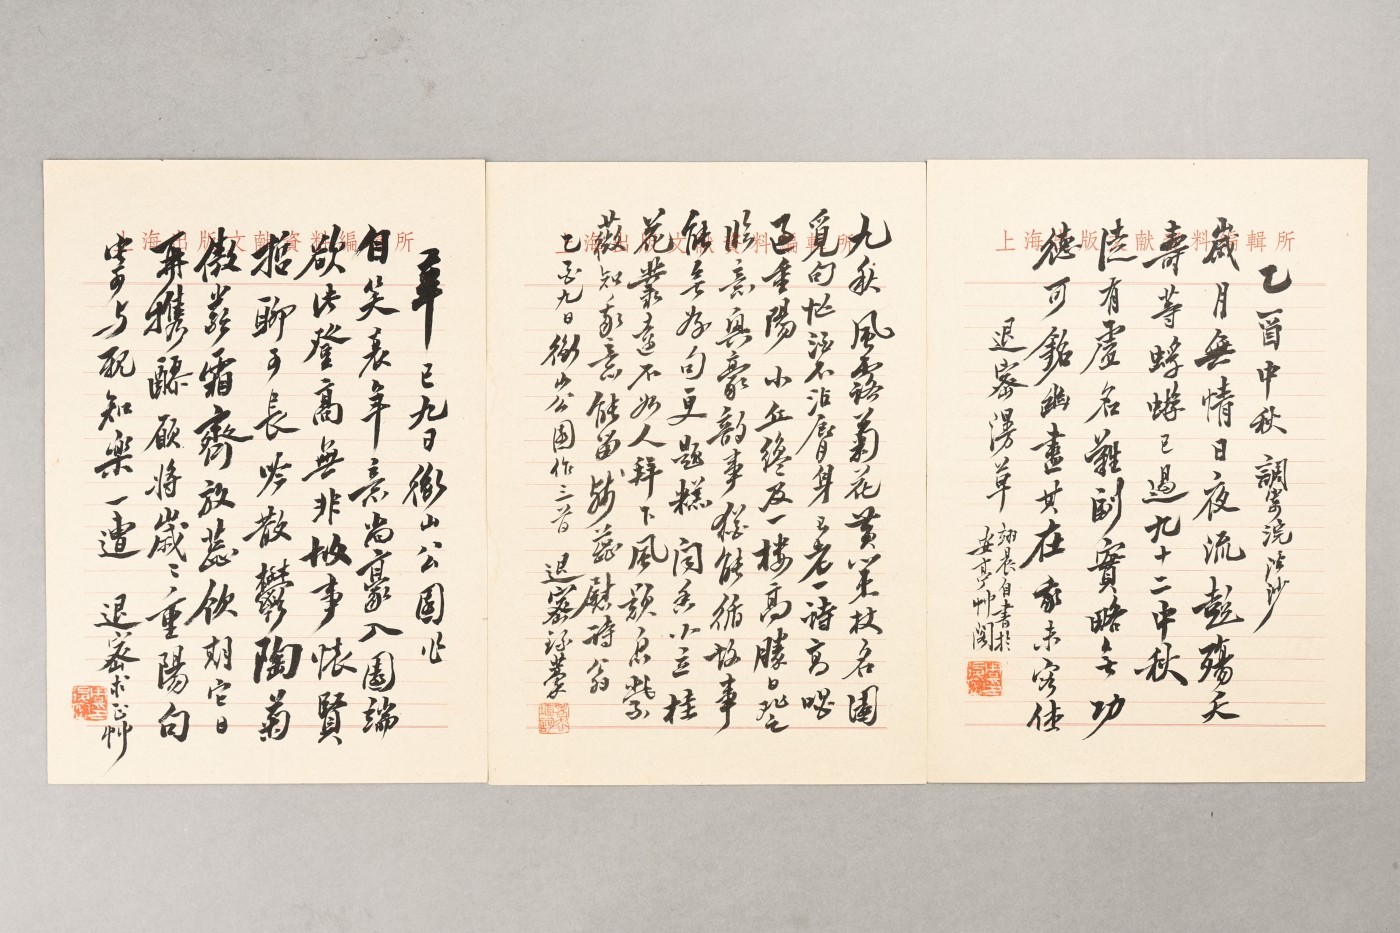 上海出版文献資料編輯所
乙酉中秋 調寄浣溪沙
歲月無情日夜流彭殤夭
壽等蜉蝣已過九十二中秋
浪有虛名難副實略無功
德可銘幽畫其在我未容休
退密漫草
翊晨自書於
安亭艸閣
上海出版文献資料編輯所
九秋風露菊花黃策杖名園
覓句忙酒不沾脣身已老一詩高唱
過重陽 小丘纔及一樓高勝日登
臨意興豪韵事猶能循故事
能無好句更題糕 閑尋小立桂
花叢遠不如人拜下風顥氣紫
薇知我意能留殘蕊慰詩翁
乙酉九日衡山公園作三首 退密
上海出版文献資料編輯所
辛巳九日衡山公園作
自笑衰年意尚豪入園端
欲作登高無非故事懷賢
哲聊可長吟散鬱陶菊
傲嚴霜齊放蕊飲期它日
再攜醪願將歲歲重陽句
寄與配知樂一遭
退密求正艸